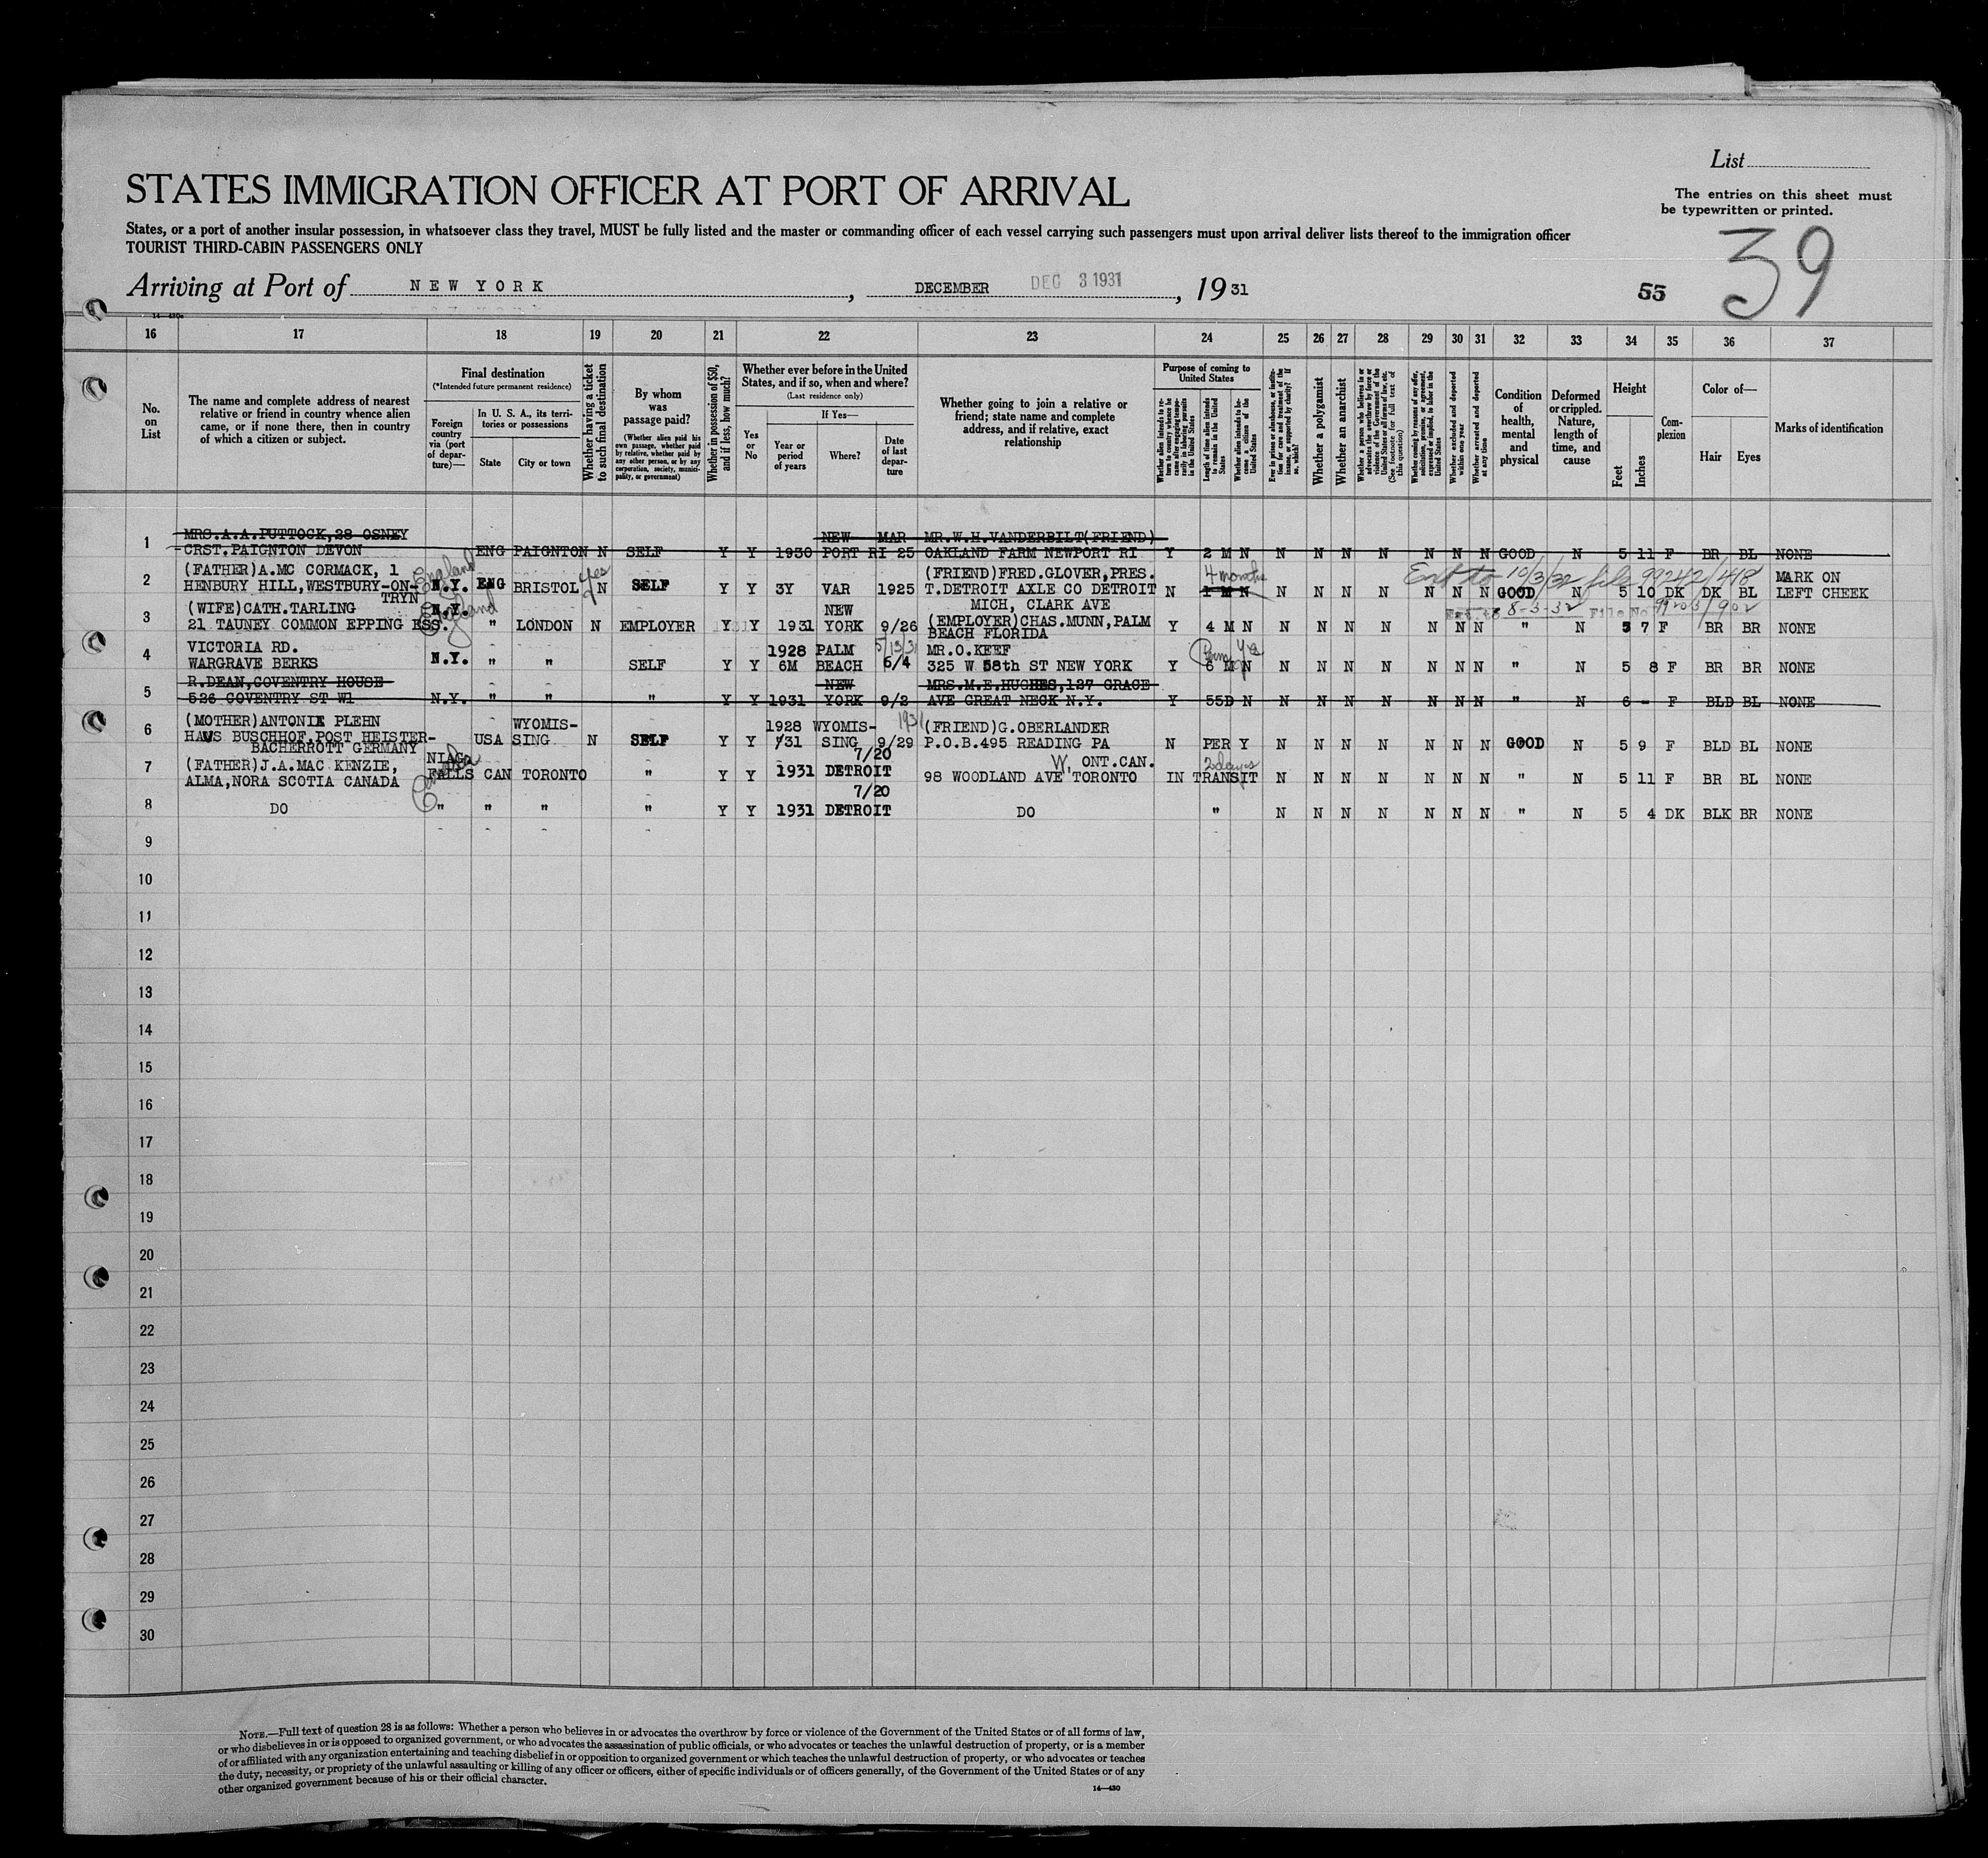 List
STATES IMMIGRATION OFFICER AT PORT OF ARRIVAL
The entries on this sheet must
be typewritten or printed.
States, or a port of another insular possession, in whatsoever class they travel, MUST be fully listed and the master or commanding officer of each vessel carrying such passengers must upon arrival deliver lists thereof to the immigration officer
TOURIST THIRD-CABIN PASSENGERS ONLY
39
Arriving at Port of NEW YORK, DECEMBER DEC 3 1931, 1931 55
16 17 18 19 20 21 22 23 24 25 26 27 28 29 30 31 32 33 34 35 36 37
No. on List
The name and complete address of nearest relative or friend in country whence alien came, or if none there, then in country of which a citizen or subject.
Final destination
(*Intended future permanent residence)
Foreign country via (port of departure)—
In U. S. A., its territories or possessions
State City or town
Whether having a ticket to such final destination
By whom was passage paid?
(Whether alien paid his own passage, whether paid by relative, whether paid by any other person, or by any corporation, society, municipality, or government)
Whether in possession of $50, and if less, how much?
Whether ever before in the United States, and if so, when and where?
(Last residence only)
Yes or No
If Yes—
Year or period of years Where? Date of last departure
Whether going to join a relative or friend; state name and complete address, and if relative, exact relationship
Purpose of coming to United States
Whether alien intends to return to country whence he came after engaging temporarily in laboring pursuits in the United States
Length of time alien intends to remain in the United States
Whether alien intends to become a citizen of the United States
Whether a polygamist
Whether an anarchist
Whether excluded and deported within one year
Whether arrested and deported at any time
Condition of health, mental and physical
Deformed or crippled. Nature, length of time, and cause
Height
Feet Inches
Complexion
Color of—
Hair Eyes
Marks of identification
1 MRS.A.A.PUTTOCK,28 OSNEY NEW MAR MR.W.H.VANDERBILT(FRIEND)
CRST.PAIGNTON DEVON ENG PAIGNTON N SELF Y Y 1930 PORT RI 25 OAKLAND FARM NEWPORT RI Y 2 M N N N N N N N N GOOD N 5 11 F BR BL NONE
2 (FATHER)A.MC CORMACK, 1 England yes (FRIEND)FRED.GLOVER,PRES. 4 months Ext to 10/3/32 file 99242/418 MARK ON
HENBURY HILL,WESTBURY-ON- N.Y. ENG BRISTOL N SELF Y Y 3Y VAR 1925 T.DETROIT AXLE CO DETROIT N 1 M N N N N N N N N GOOD N 5 10 DK DK BL LEFT CHEEK
TRYN MICH, CLARK AVE
3 (WIFE)CATH.TARLING N.Y. England NEW Ext. to 8-3-32 File No
21 TAUNEY COMMON EPPING ESS. " LONDON N EMPLOYER Y Y 1931 YORK 9/26 (EMPLOYER)CHAS.MUNN,PALM Y 4 M N N N N N N N N " N 5 7 F BR BR NONE
BEACH FLORIDA
4 VICTORIA RD. 1928 PALM 5/13/31 MR.O.KEEF Perm Yes
WARGRAVE BERKS N.Y. " " SELF Y Y 6M BEACH 6/4 325 W 58th ST NEW YORK Y 6 M N N N N N N N N " N 5 8 F BR BR NONE
5 R.DEAN,COVENTRY HOUSE NEW MRS.M.E.HUGHES,137 GRACE
526 COVENTRY ST W1 N.Y. " " " Y Y 1931 YORK 9/2 AVE GREAT NECK N.Y. Y 55D N N N N N N N N " N 6 - F BLD BL NONE
6 (MOTHER)ANTONIE PLEHN WYOMIS- 1928 WYOMIS- 1931 (FRIEND)G.OBERLANDER
HAUS BUSCHHOF,POST HEISTER- USA SING N SELF Y Y /31 SING 9/29 P.O.B.495 READING PA N PER Y N N N N N N N GOOD N 5 9 F BLD BL NONE
BACHERROTT GERMANY
7 NIAG. Canada 7/20 W, ONT.CAN. 2 days
(FATHER)J.A.MAC KENZIE, FALLS CAN TORONTO " Y Y 1931 DETROIT 98 WOODLAND AVE TORONTO IN TRANSIT N N N N N N N " N 5 11 F BR BL NONE
ALMA,NORA SCOTIA CANADA
7/20
8 DO " " " " Y Y 1931 DETROIT DO " N N N N N N N " N 5 4 DK BLK BR NONE
9
10
11
12
13
14
15
16
17
18
19
20
21
22
23
24
25
26
27
28
29
30
NOTE.—Full text of question 28 is as follows: Whether a person who believes in or advocates the overthrow by force or violence of the Government of the United States or of all forms of law,
or who disbelieves in or is opposed to organized government, or who advocates the assassination of public officials, or who advocates or teaches the unlawful destruction of property, or is a member
of or affiliated with any organization entertaining and teaching disbelief in or opposition to organized government or which teaches the unlawful destruction of property, or who advocates or teaches
the duty, necessity, or propriety of the unlawful assaulting or killing of any officer or officers, either of specific individuals or of officers generally, of the Government of the United States or of any
other organized government because of his or their official character.
14—430